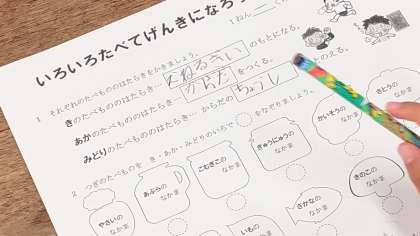 いろいろたべてげんきになろう
1ねん 二
1 それぞれのたべもののはたらきをかきましょう。
きのたべもののはたらき… えねるぎい のもとになる。
あかのたべもののはたらき… からだ をつくる。
みどりのたべもののはたらき… からだの ちょうし
のえる。
2 つぎのたべものを き・あか・みどりのいろで をなぞりましょう。
やさいの なかま
あぶらの なかま
こむぎこの なかま
ぎゅうにゅうの なかま
かいそうの なかま
さとうの なかま
いもの
さかなの なかま
きのこの なかま